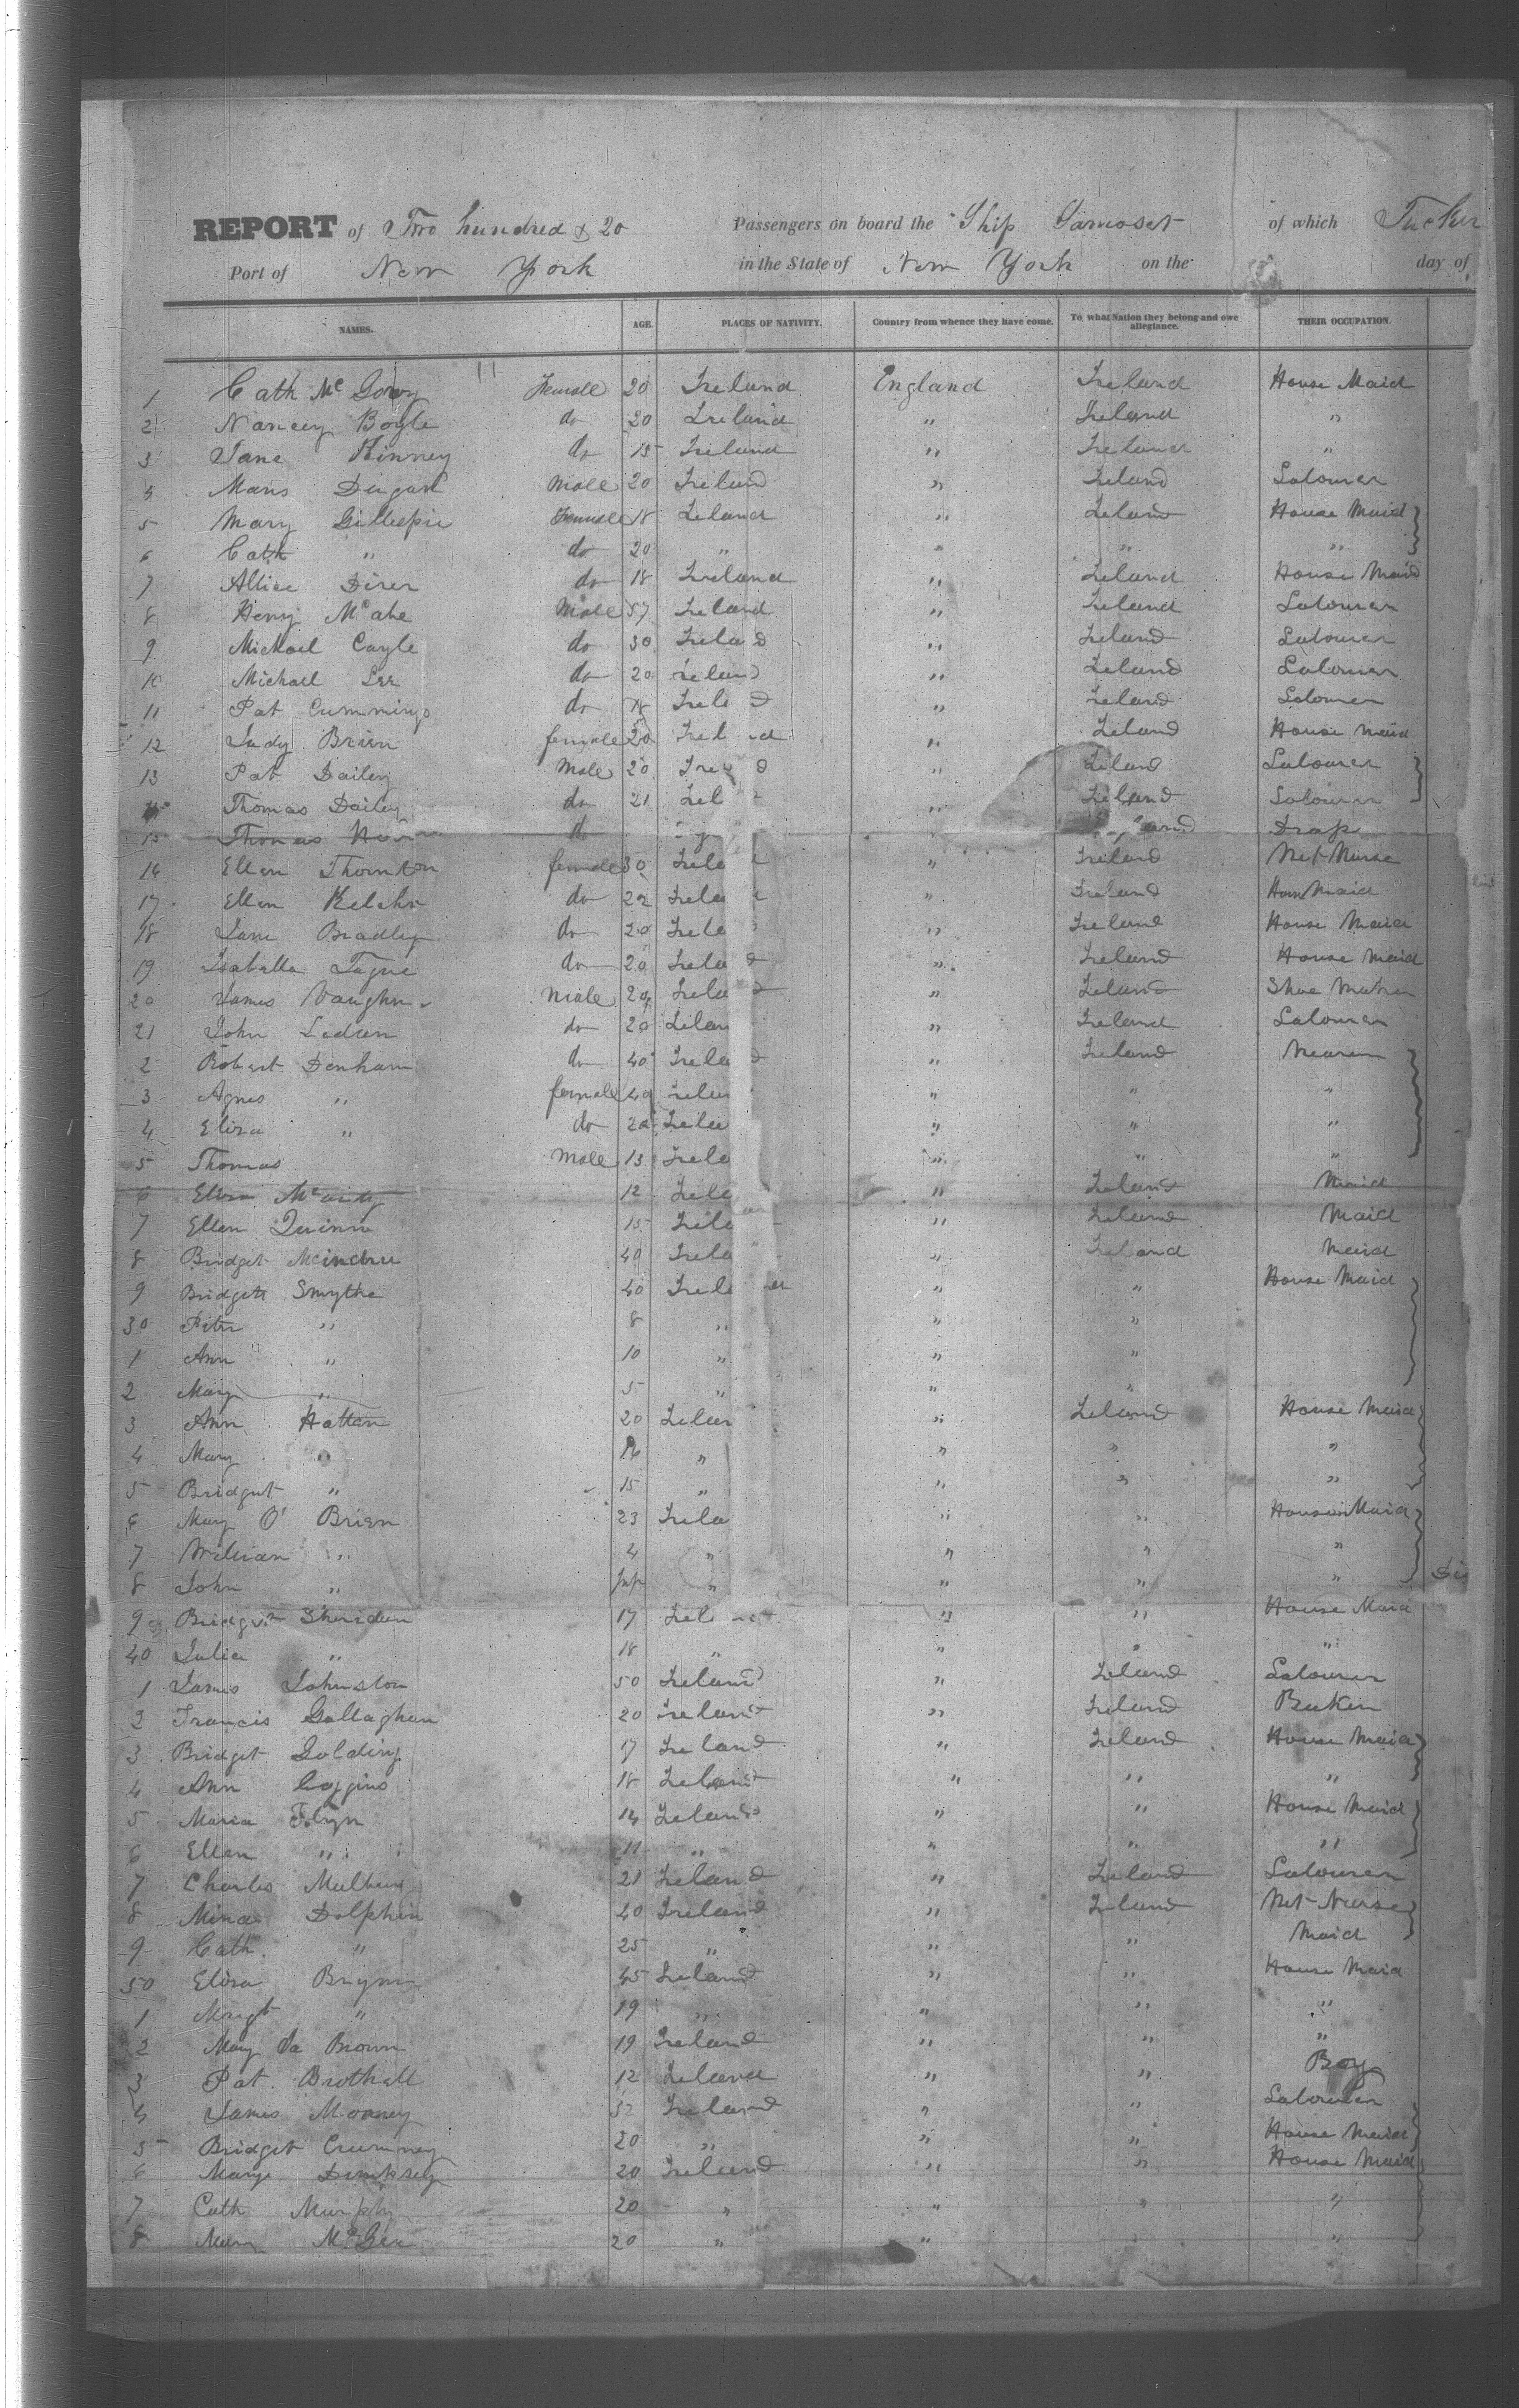 REPORT of Two hundred & 20 Passengers on board the Ship Samoset of which Tucker
Port of New York in the State of New York on the day of
NAMES. AGE. PLACES OF NATIVITY. Country from whence they have come. To what Nation they belong and owe allegiance. THEIR OCCUPATION.
1 Cath Mc Female 20 Ireland England Ireland House Maid
2 Nancy Boyle do 20 Ireland " Ireland "
3 Jane Kinney do 15 Ireland " Ireland "
4 Dugan Male 20 Ireland " Ireland Labourer
5 Mary Gillespie Female 18 Ireland " Ireland House Maid
6 Cath " do 20 " " " "
7 Allice do 18 Ireland " Ireland House Maid
8 Henry McCabe Male 37 Ireland " Ireland Labourer
9 Michael Cayle do 30 Ireland " Ireland Labourer
10 Michael Lee do 20 Ireland " Ireland Labourer
11 Pat Cummings do 18 Irel d " Ireland Labourer
12 Judy Brien female 20 Irel d " Ireland House Maid
13 Pat Dailey Male 20 Ire d " Ireland Labourer
Thomas Dailey do 21 Irel " Ireland Labourer
15 Thomas do and Drap
16 Ellen Thornton female 30 Irela " Ireland Wet Nurse
17 Ellen do 22 Irela " Ireland House Maid
18 Jane Bradley do 20 Irela " Ireland House Maid
19 Isabella Tague do 20 Irela d " Ireland House Maid
20 James Vaughn Male 20 Irela d " Ireland Shoe Maker
21 John do 20 Irelan " Ireland Labourer
2 Robert Denham do 40 Irela d " Ireland
3 Agnes " female 40 Irelan " " "
4 Eliza " do 20 Irela " " "
5 Thomas Male 13 Irela " " "
6 Eliza 12 Irela " Ireland Maid
7 Ellen Quinn 15 Irela " Ireland Maid
8 Bridget 40 Irela " Ireland Maid
9 Bridget Smythe 40 Irel " " House Maid
30 Peter " 8 " " "
1 Ann " 10 " " "
2 Mary " 5 " " "
3 Ann Hatton 20 Irelan " Ireland House Maid
4 Mary " 16 " " " "
5 Bridget " 15 " " " "
6 Mary O' Brien 23 Irela " " House Maid
7 William " 4 " " " "
8 John " Inf " " " "
9 Bridget Sheridan 17 Irel " " House Maid
40 Julia " 18 " " " "
1 James Johnston 50 Ireland " Ireland Labourer
2 Francis Gallaghan 20 Ireland " Ireland
3 Bridget Golding 17 Ireland " Ireland House Maid
4 Ann 18 Ireland " " "
5 Maria Flyn 14 Ireland " " House Maid
6 Ellen " 11 " " " "
7 Charles 21 Ireland " Ireland Labourer
8 Dolphin 40 Ireland " Ireland Wet Nurse
9 Cath " 25 " " " Maid
50 Eliza 45 Ireland " " House Maid
1 Margt " 19 " " " "
2 Mary Brown 19 Ireland " " "
3 Pat Brothell 12 Ireland " " Boy
4 James Mooney 32 Ireland " " Labourer
5 Bridget Crumney 20 " " " House Maid
6 Mary Dempsey 20 Ireland " " House Maid
7 Cath Murphy 20 " " " "
8 Mary McGee 20 " " " "